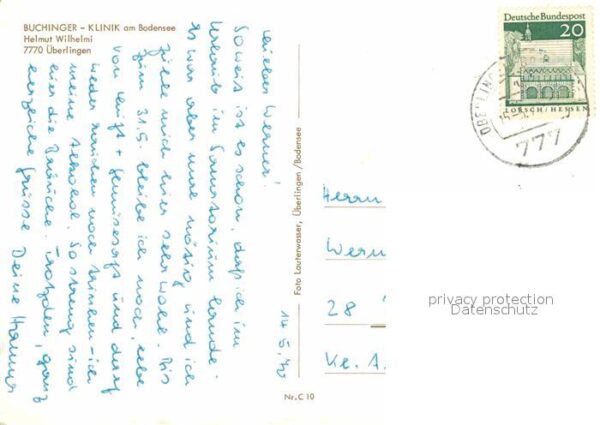 BUCHINGER – KLINIK am Bodensee
Helmut Wilhelmi
7770 Überlingen
14.5.70
Lieber Werner!
Soweit ist es schon, daß ich im
Urlaub im Sanatorium lande.
Es war aber mal nötig und ich
fühle mich hier sehr wohl. Bis
zum 31.5. bleibe ich noch, lebe
von Luft + Gemüsesaft und darf
weder rauchen noch trinken – ich
meine Alkohol. So streng sind
hier die Bräuche. Trotzdem, ganz
herzliche Grüsse Deine Hanna
Foto Lauterwasser, Überlingen/Bodensee
Nr. C 10
Deutsche Bundespost
20
LORSCH/HESSEN
777
Herrn
Wern
28
Kl. A
privacy protection
Datenschutz